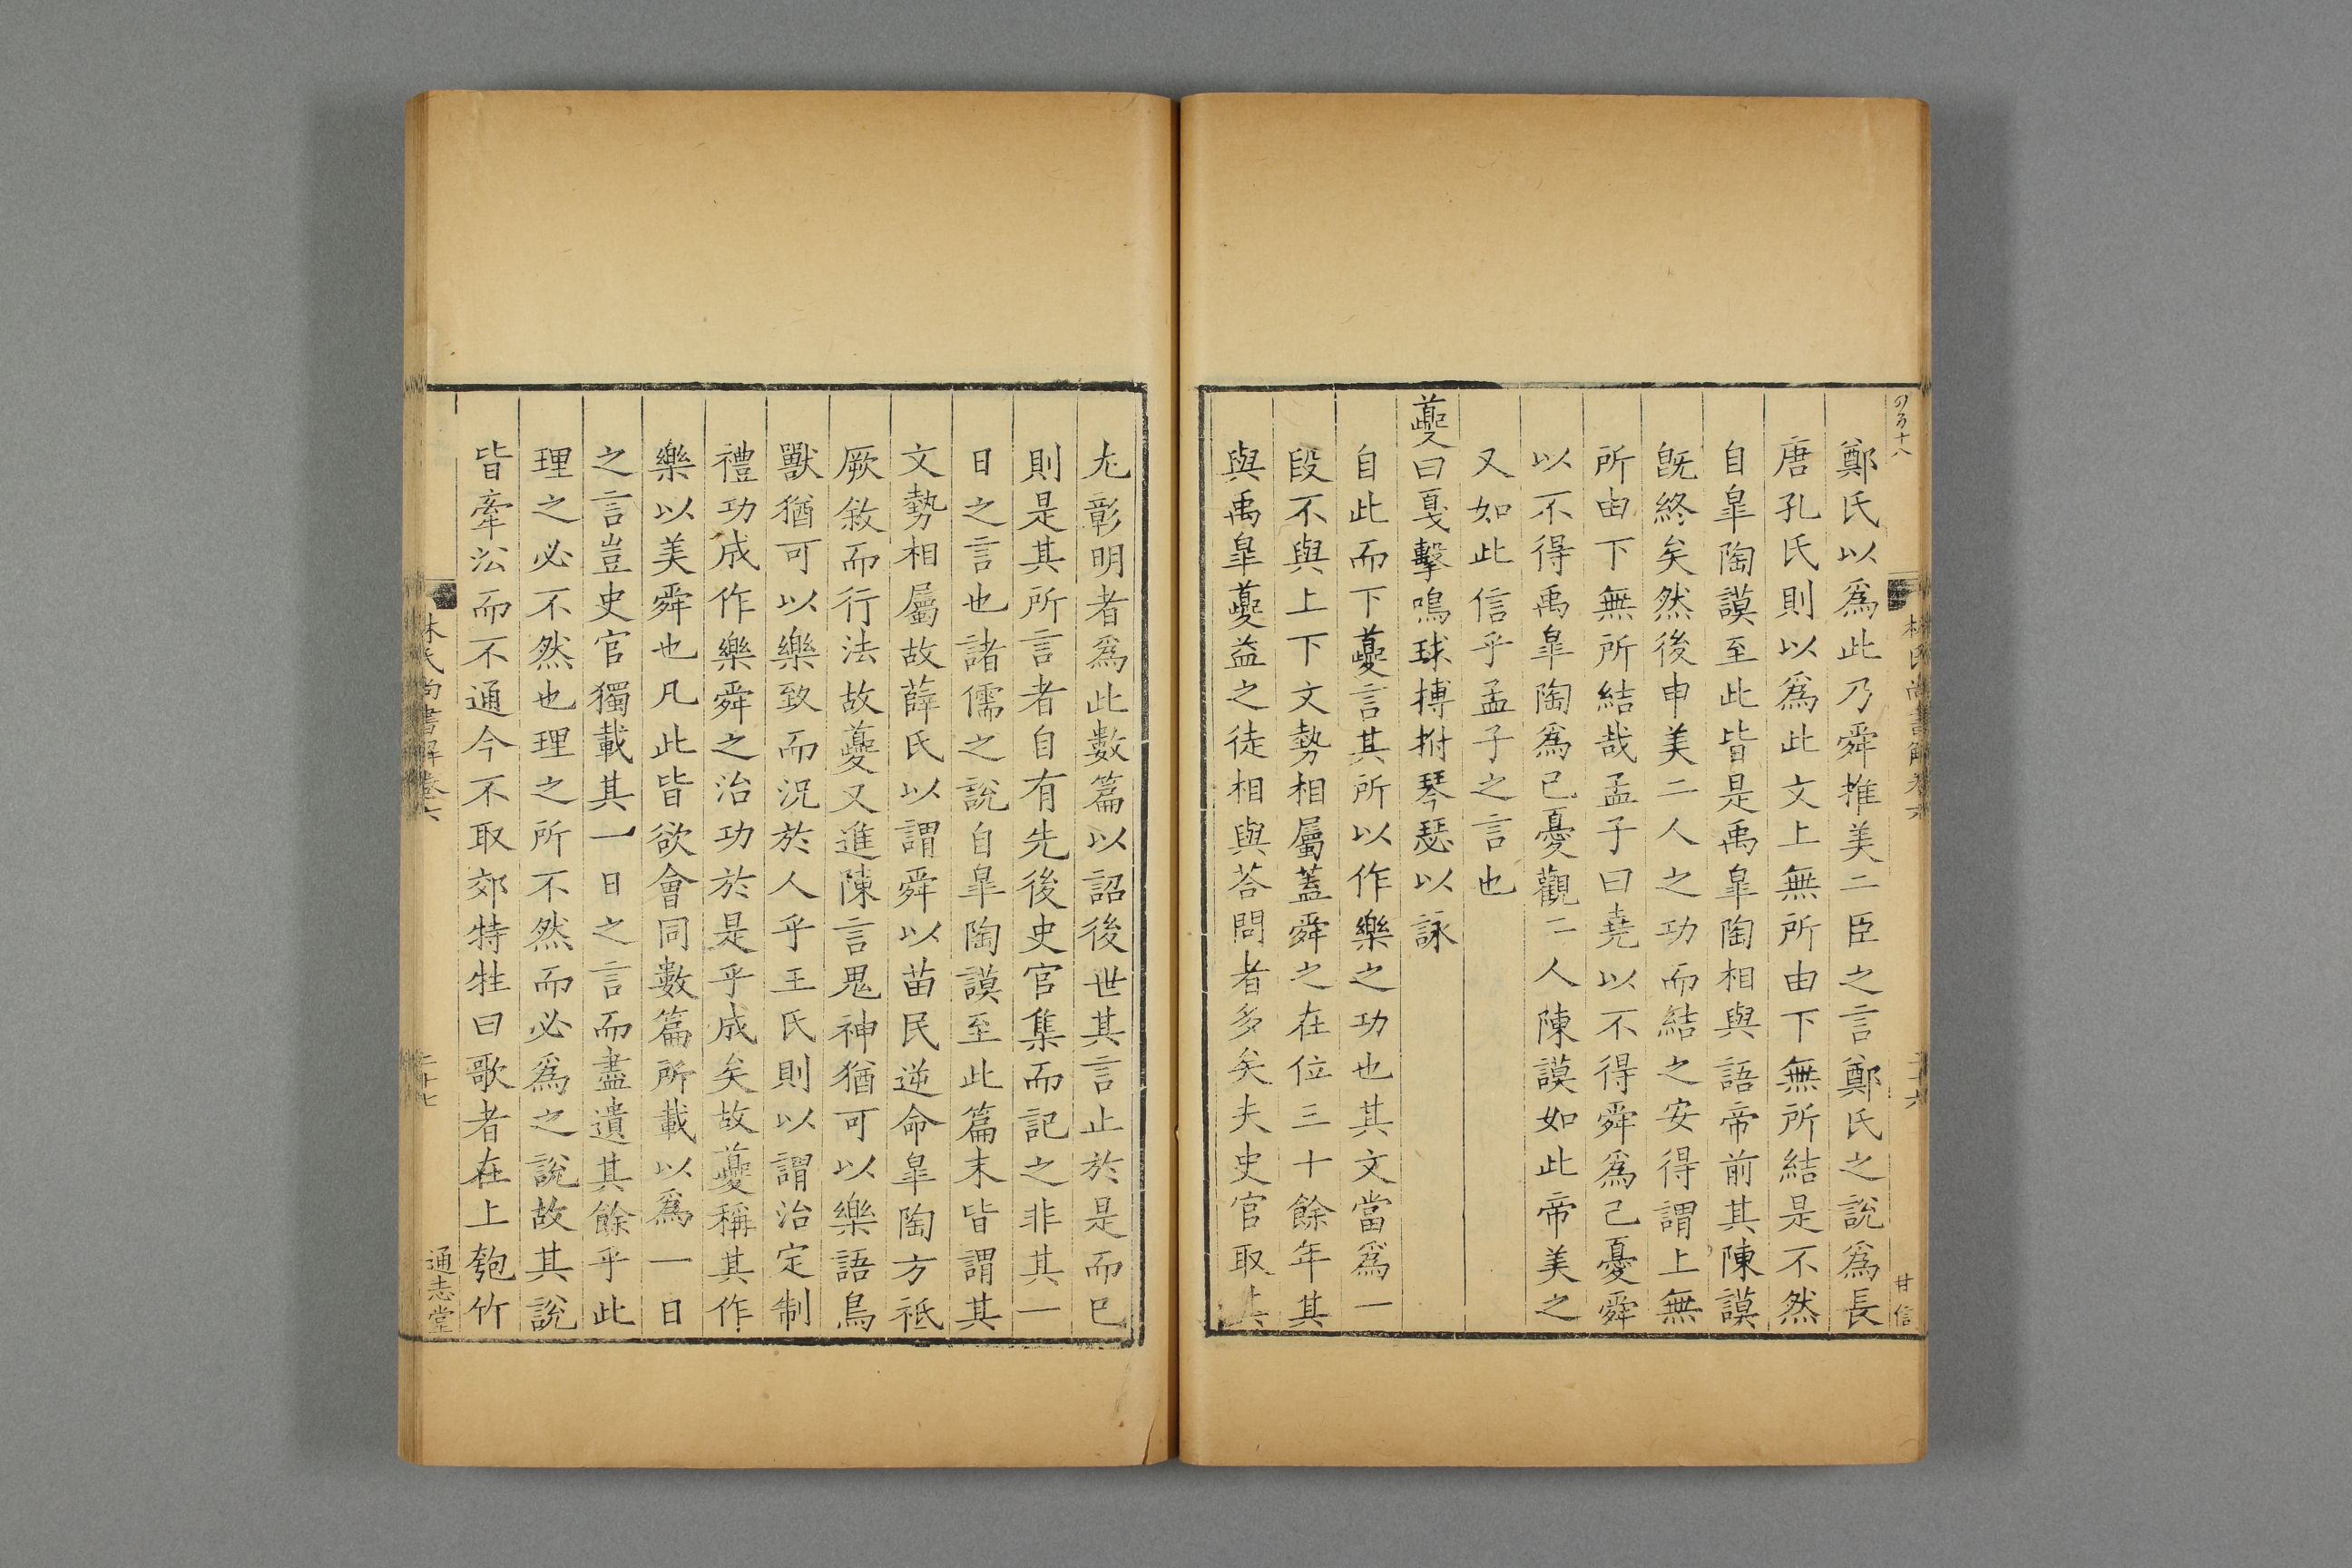 鄭氏以爲此乃舜推美二臣之言鄭氏之說爲長
唐孔氏則以爲此文上無所由下無所結是不然
自皐陶謨至此皆是禹皐陶相與語帝前其陳謨
旣終矣然後申美二人之功而結之安得謂上無
所由下無所結哉孟子曰堯以不得舜爲己憂舜
以不得禹皐陶爲己憂觀二人陳謨如此帝美之
又如此信乎孟子之言也
夔曰戛擊鳴球搏拊琴瑟以詠
自此而下夔言其所以作樂之功也其文當爲一
段不與上下文勢相屬蓋舜之在位三十餘年其
與禹皐夔益之徒相與荅問者多矣夫史官取其
尤彰明者爲此數篇以詔後世其言止於是而已
則是其所言者自有先後史官集而記之非其一
日之言也諸儒之說自皐陶謨至此篇末皆謂其
文勢相屬故薛氏以謂舜以苗民逆命皐陶方祗
厥敘而行法故夔又進陳言鬼神猶可以樂語鳥
獸猶可以樂致而況於人乎王氏則以謂治定制
禮功成作樂舜之治功於是乎成矣故夔稱其作
樂以美舜也凡此皆欲會同數篇所載以爲一日
之言豈史官獨載其一日之言而盡遺其餘乎此
理之必不然也理之所不然而必爲之說故其說
皆牽㳂而不通今不取郊特牲曰歌者在上匏竹
林氏尚書解卷六
二十六
甘信
林氏尚書解卷六
二十七
通志堂